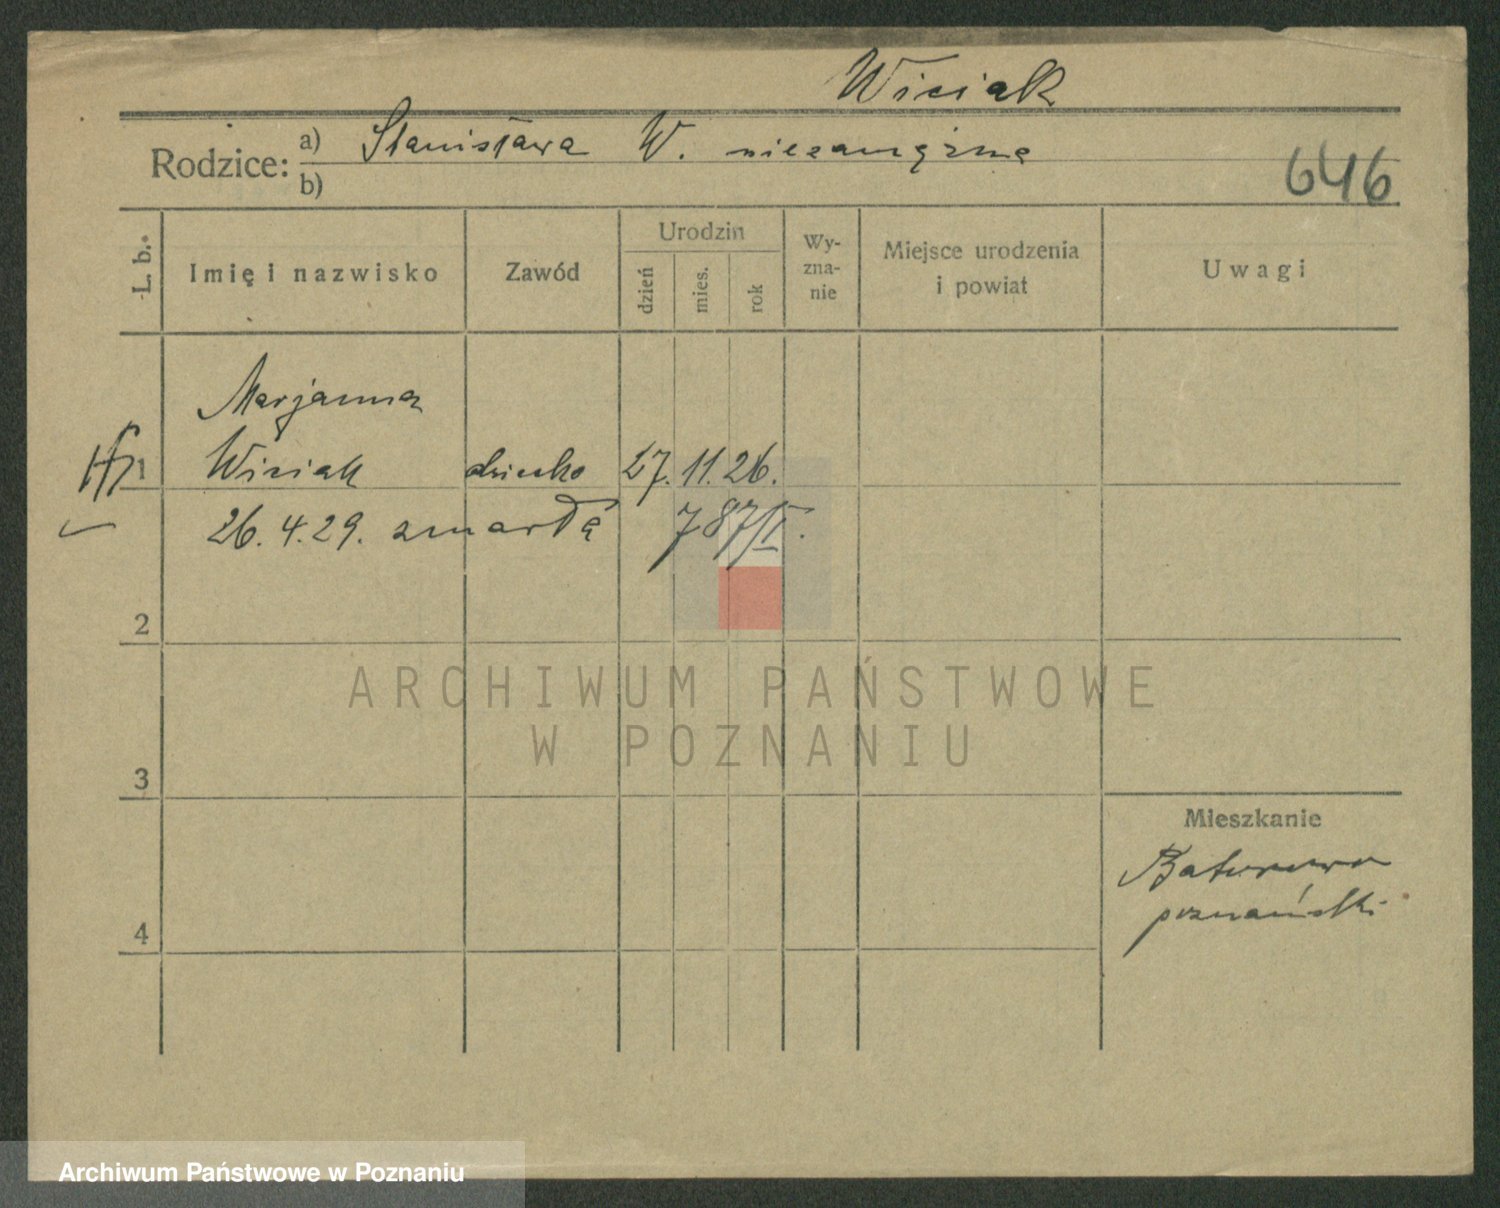 Wiciak
Rodzice: a) Stanisława W. niezamężna
b)
646
L. b.
Imię i nazwisko
Zawód
Urodzin
dzień
mies.
rok
Wy-
zna-
nie
Miejsce urodzenia
i powiat
Uwagi
Marjanna
1 Wiciak dziecko 27. 11. 26.
26. 4. 29. zmarła 787/II.
2
ARCHIWUM PAŃSTWOWE
W POZNANIU
3
Mieszkanie
Baturowo
poznański
4
Archiwum Państwowe w Poznaniu